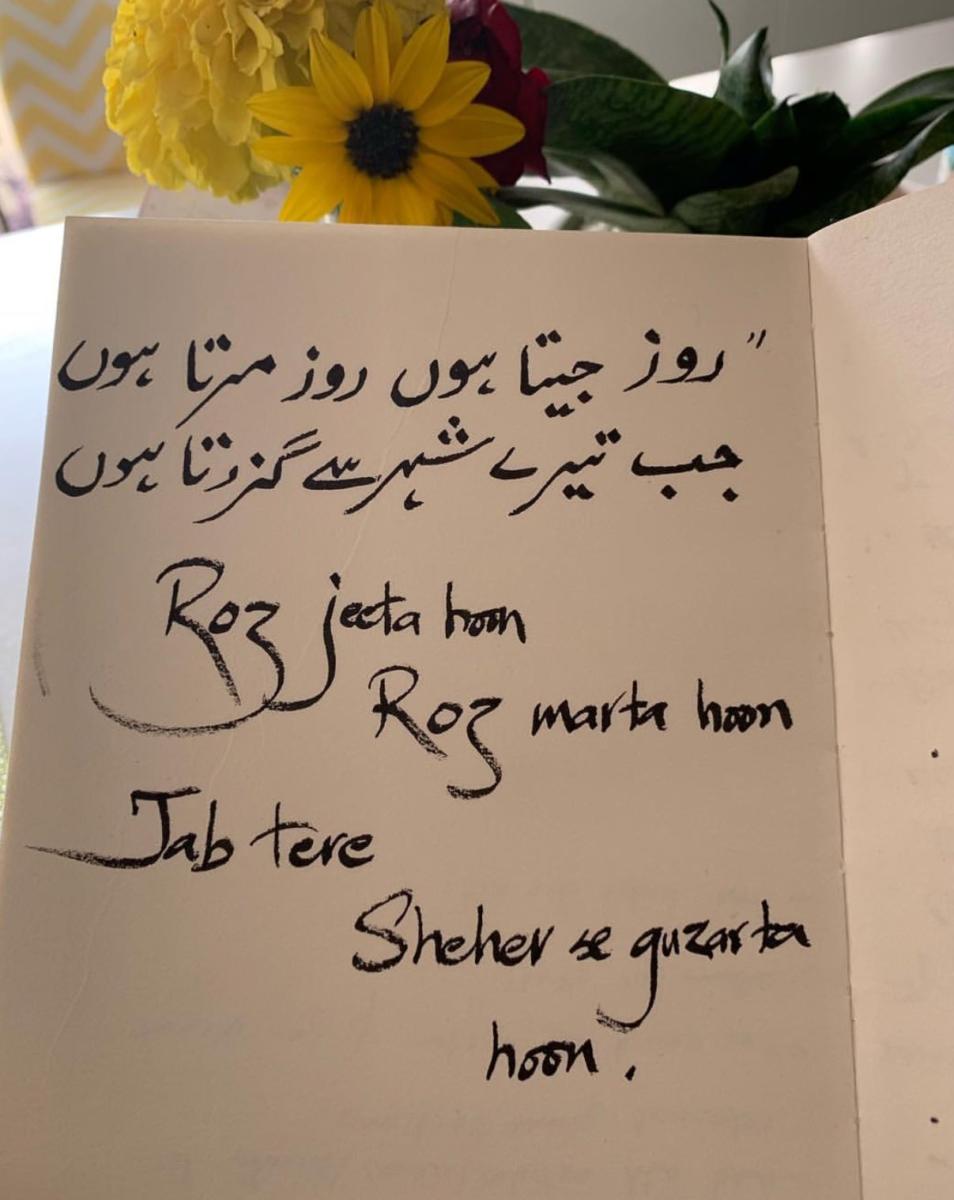 "روز جیتا ہوں روز مرتا ہوں
جب تیرے شہر سے گزرتا ہوں
Roz jeeta hoon
Roz marta hoon
Jab tere
Sheher se guzarta
hoon.